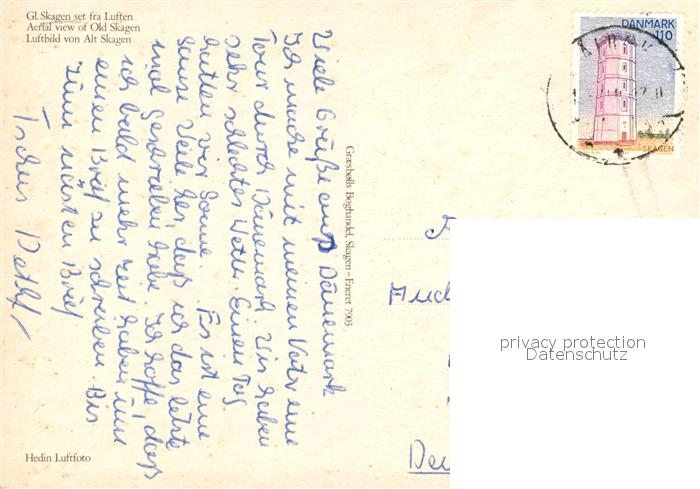 Gl. Skagen set fra Luften
Aerial view of Old Skagen
Luftbild von Alt Skagen
Viele Grüße aus Dänemark
Ich mache mit meinen Vater eine
Tour durch Dänemark. Wir haben
sehr schlechtes Wetter. Einen Tag
hatten wir Sonne. Es ist eine
Weile her, daß ich das letzte
mal geschrieben habe. Ich hoffe, daß
ich bald mehr Zeit haben um
einen Brief zu schreiben. Bis
zum nästen Brief
Tschüs Detlef
Hedin Luftfoto
Græsholls Boghandel, Skagen - Eneret 7903
DANMARK
110
SKAGEN
privacy protection
Datenschutz